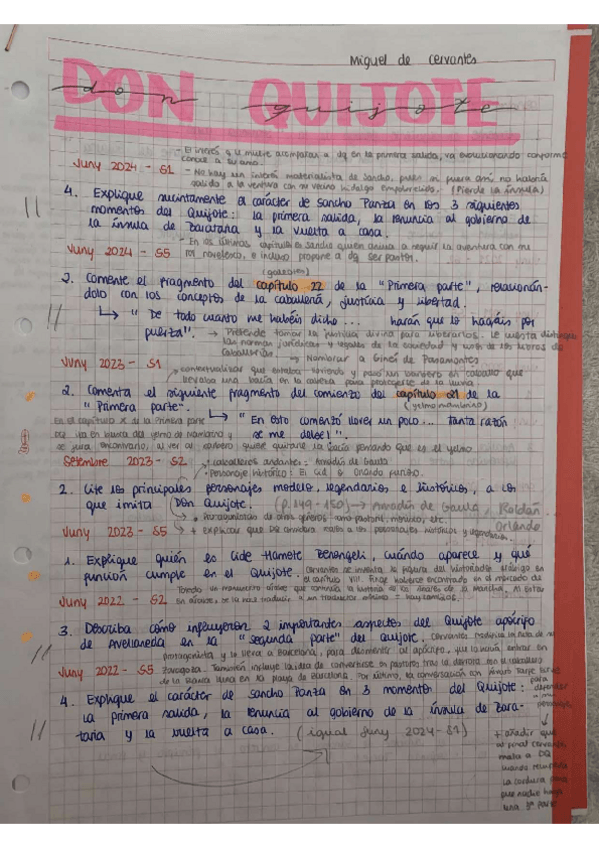 Miguel de Cervantes
DON QUIJOTE
don quijote
- El interés q le mueve acompañar a dq en la primera salida, va evolucionando conforme
conoce a su amo.
Juny 2024 - S1
- No hay un interés materialista de Sancho, pues si fuera así no habría
salido a la ventura con su vecino hidalgo empobrecido. (Pierde la ínsula)
4. Explique sucintamente el carácter de Sancho Panza en los 3 siguientes
momentos del Quijote: la primera salida, la renuncia al gobierno de
la ínsula de Barataria y la vuelta a casa.
Juny 2024 - S5
- En los últimos capítulos es Sancho quien anima a seguir la aventura con
novelesco, e incluso propone a dq ser pastor.
(galeotes)
2. Comente el fragmento del capítulo 22 de la "Primera parte", relacionán-
dolo con los conceptos de la caballería, justicia y libertad.
"De todo cuanto me habéis dicho... harán que lo hagáis por
fuerza".
- Pretende tomar la justicia divina para liberarlos. Le cuesta distinguir
las normas jurídicas y legales de la sociedad y las de los libros de
caballerías.
- Nombrar a Ginés de Pasamontes
Juny 2023 - S1
contextualizar que estaba lloviendo y pasó un barbero en caballo que
llevaba una bacía en la cabeza para protegerse de la lluvia
2. Comenta el siguiente fragmento del comienzo del capítulo 21 de la
"Primera parte".
(yelmo mambrino)
"En esto comenzó llover un poco... tanta razón
se me debe!".
En el capítulo X de la primera parte
DQ va en busca del yelmo de Mambrino y
se jura encontrarlo, al ver al barbero quiere quitarle la bacía pensando que es el yelmo
Setembre 2023 - S2
• caballeros andantes: Amadís de Gaula
• Personaje histórico: El Cid & Orlando furioso.
2. Cite los principales personajes modelo, legendarios e históricos, a los
que imita Don Quijote.
(p. 149-150) → Amadís de Gaula, Roldán,
Orlando
• Protagonistas de otros géneros como pastoril, morisco, etc.
Juny 2023 - S5
+ explicar que DQ considera reales a los personajes históricos y legendarios.
1. Explique quién es Cide Hamete Berengeli, cuándo aparece y qué
función cumple en el Quijote.
Cervantes se inventa la figura del historiador arábigo en
el capítulo VIII. Finge haberse encontrado en el mercado de
Juny 2022 - S2
Toledo un manuscrito árabe que continúa la historia de la Mancha. Al estar
en árabe, se lo hace traducir a un traductor morisco
3. Describa cómo influyeron 2 importantes aspectos del Quijote apócrifo
de Avellaneda en la "segunda parte" del Quijote.
protagonista, y se lleva a Barcelona, para desmentir al apócrifo, que lo había entrar en
Juny 2022 - S5
Zaragoza. También incluye la idea de convertirse en pastores tras la derrota con el caballero
de la Blanca Luna en la playa de Barcelona. Por último, la conversación con Álvaro Tarfe
4. Explique el carácter de Sancho Panza en 3 momentos del Quijote:
la primera salida, la renuncia al gobierno de la ínsula de Bara-
taria y la vuelta a casa.
(igual Juny 2024-S1)
para
+ añadir que
al final Cervantes
mata a DQ
cuando recupera
la cordura para
que nadie haga
una 3ª parte